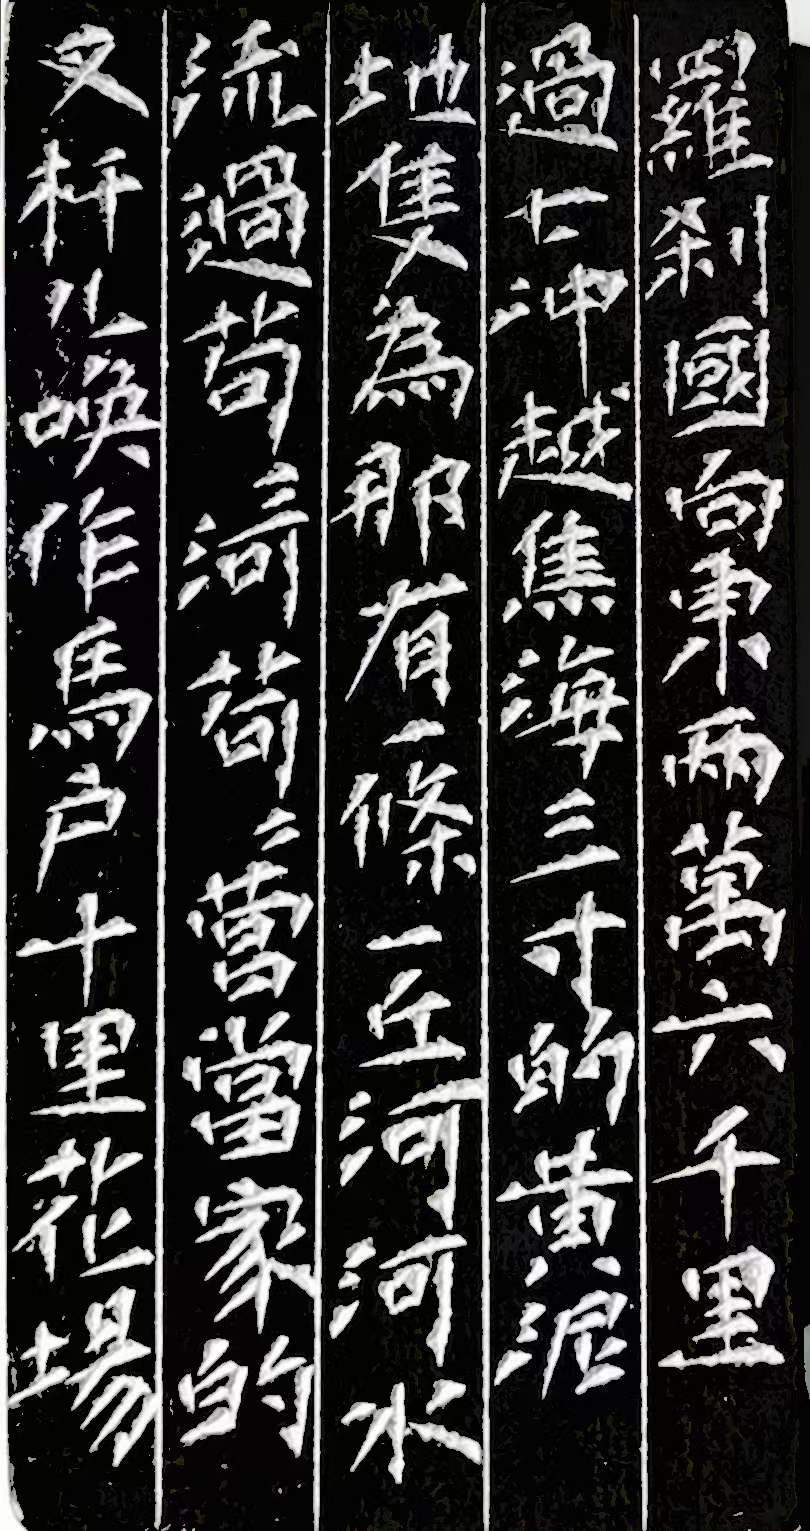 羅刹國向東兩萬六千里
過七冲越焦海三寸的黄泥
地隻為那有一條一丘河河水
流過苟〻河苟〻營當家的
叉杆儿喚作馬户十里花場